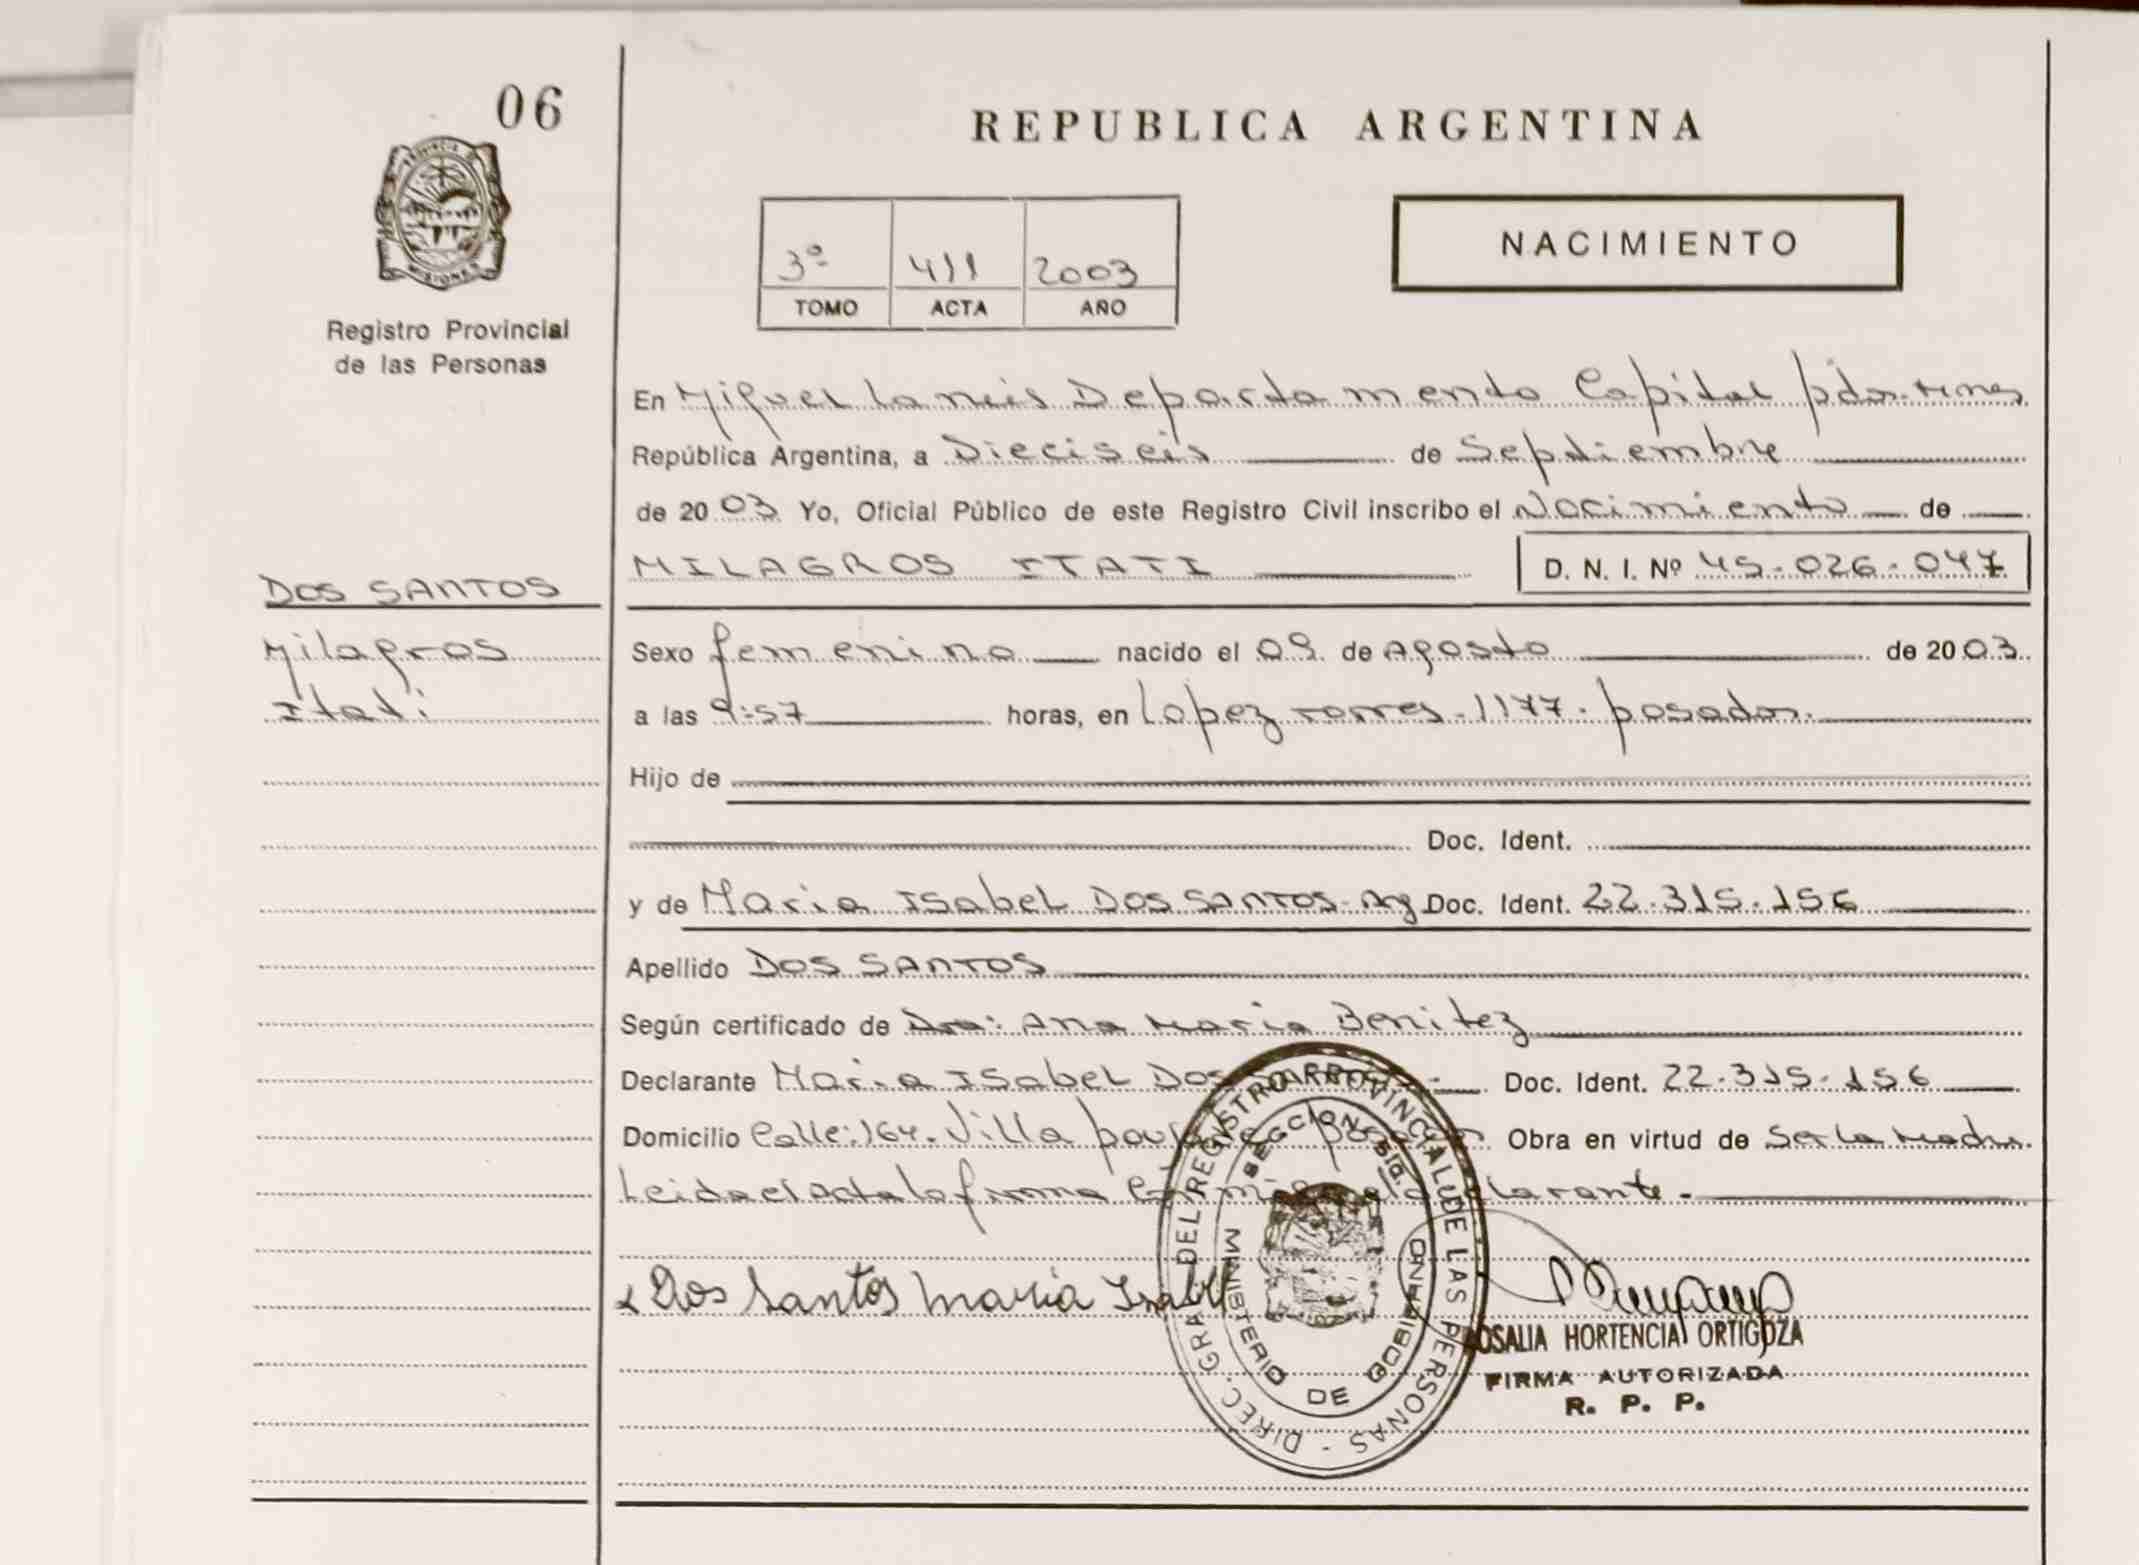 06
PROVINCIA DE
MISIONES
Registro Provincial
de las Personas
DOS SANTOS
Milagros
Itati
REPUBLICA ARGENTINA
NACIMIENTO
3º 411 2003
TOMO ACTA AÑO
En Miguel Lanús Departamento Capital
República Argentina, a Dieciseis de Septiembre
de 2003 Yo, Oficial Público de este Registro Civil inscribo el Nacimiento de
MILAGROS ITATI D. N. I. Nº 45-026-047
Sexo femenino nacido el 09 de Agosto de 2003
a las 9:57 horas, en Lopez torres-1177-posadas.
Hijo de
Doc. Ident.
y de Maria ISabel DOS SANTOS-Arg Doc. Ident. 22.315.156
Apellido DOS SANTOS
Según certificado de Dra: Ana Maria Benitez
Declarante Maria ISabel Dos Doc. Ident. 22.315.156
Domicilio Calle:164-Villa Obra en virtud de Ser la Madre.
Leida el acta la firma
Dos Santos maria Isabel
DIREC. GRAL. DEL REGISTRO PROVINCIAL DE LAS PERSONAS -
SECCION 5ta.
MINISTERIO DE GOBIERNO
ROSALIA HORTENCIA ORTIGOZA
FIRMA AUTORIZADA
R. P. P.